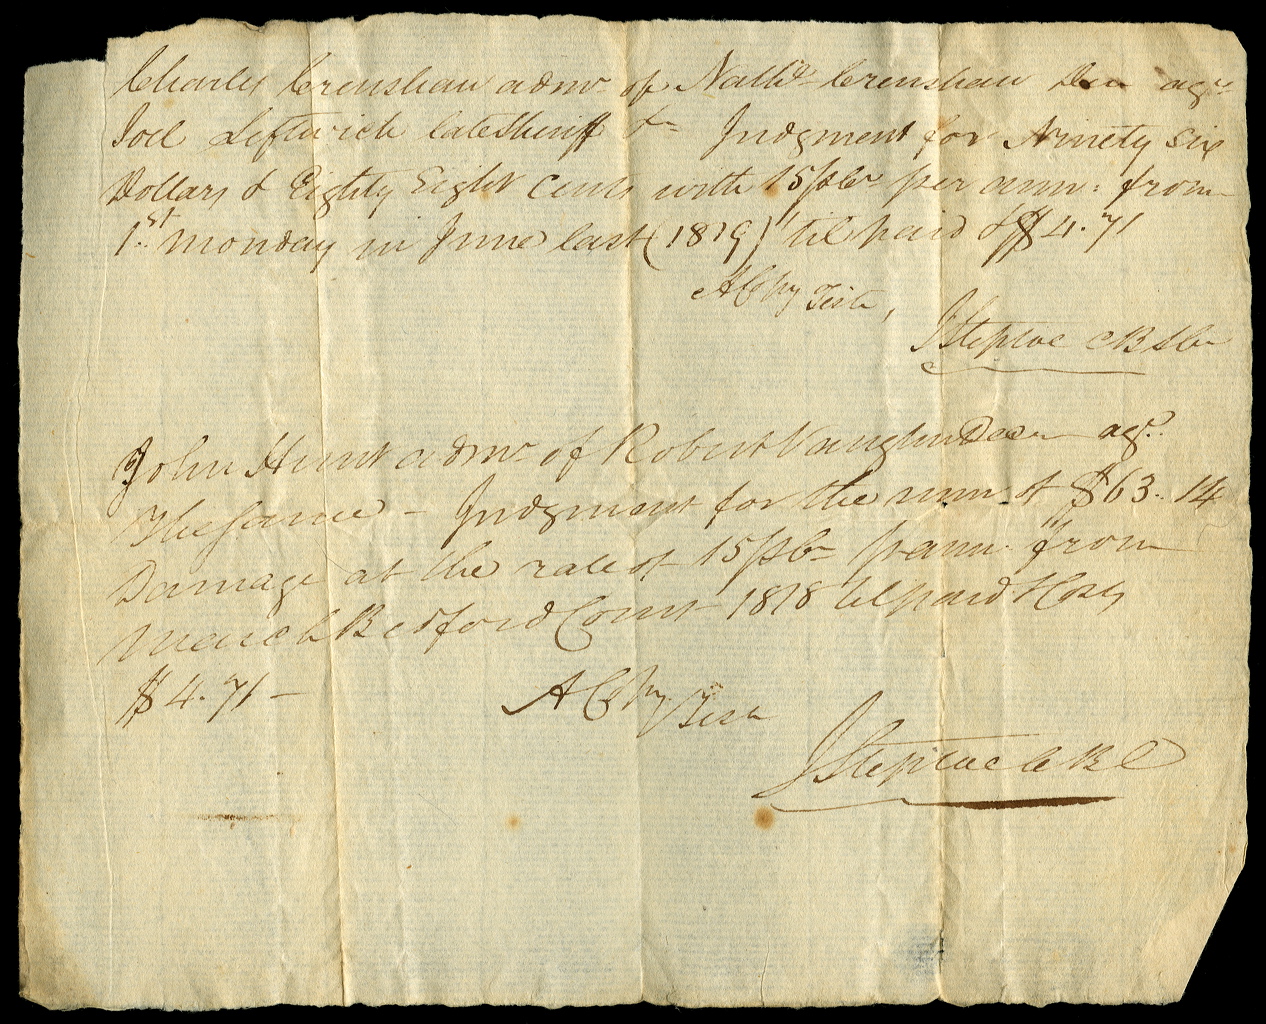 Charles Crenshaw admr. of Nathl. Crenshaw Dec agt.
Joel Leftwich late Sheriff &c Judgment for Ninety six
Dollars & Eighty Eight Cents with 15 pCr per ann: from
1st. monday in June last (1819) 'til paid & $4.71
A Copy Teste,
J Steptoe CB
John Hunt admr. of Robert Vaughn Decr agt.
The same - Judgment for the sum of $63..14
Damage at the rate of 15 pCr p ann. from
March Bedford Court 1818 til paid & Costs
$4.71 -
A Copy Teste
J Steptoe CBC